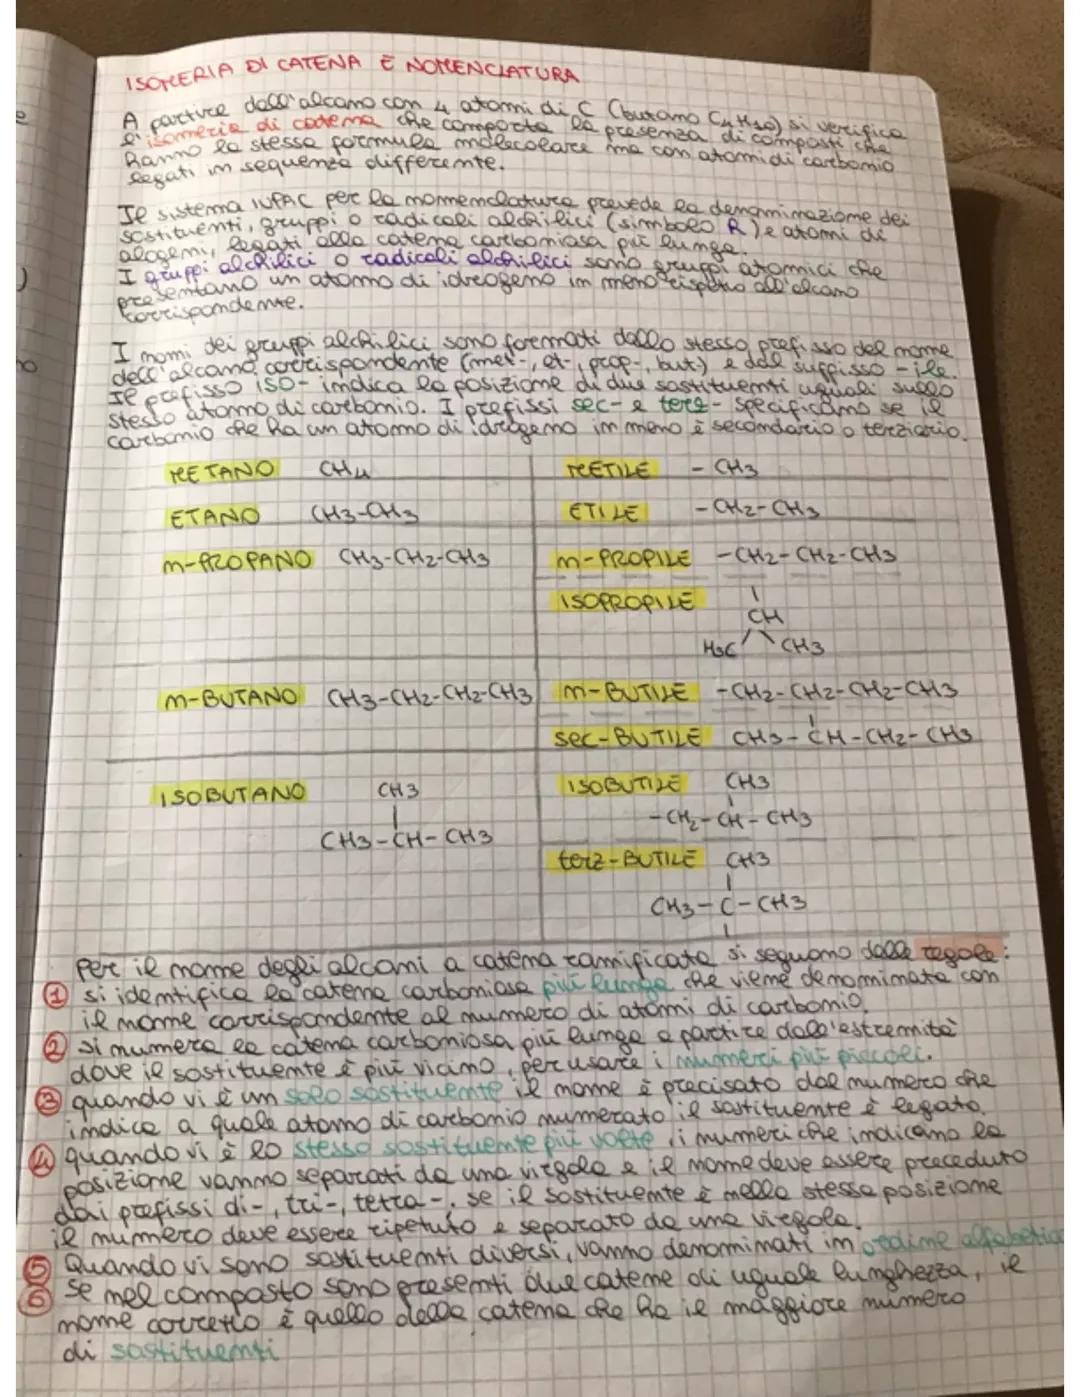 ISOMERIA DI CATENA E NOMENCLATURA
A partire dall'alcano con 4 atomi di C (butano C4H10) si verifica
l'isomeria di catena che comporta la presenza di composti che
hanno la stessa formula molecolare ma con atomi di carbonio
legati in sequenza differente.
Il sistema IUPAC per la nomenclatura prevede la denominazione dei
sostituenti, gruppi o radicali alchilici (simbolo R) e atomi di
alogeni, legati alla catena carboniosa più lunga.
I gruppi alchilici o radicali alchilici sono gruppi atomici che
presentano un atomo di idrogeno in meno rispetto all'alcano
corrispondente.
I nomi dei gruppi alchilici sono formati dallo stesso prefisso del nome
dell'alcano corrispondente (met-, et-, prop-, but) e dal suffisso -ile.
Il prefisso ISO- indica la posizione di due sostituenti uguali sullo
stesso atomo di carbonio. I prefissi sec- e terz- specificano se il
carbonio che ha un atomo di idrogeno in meno è secondario o terziario.
METANO CH4
METILE - CH3
ETANO CH3-CH3
ETILE -CH2-CH3
n-PROPANO CH3-CH2-CH3
n-PROPILE -CH2-CH2-CH3
ISOPROPILE
CH
H3C CH3
n-BUTANO CH3-CH2-CH2-CH3
n-BUTILE -CH2-CH2-CH2-CH3
sec-BUTILE CH3-CH-CH2-CH3
ISOBUTANO CH3
CH3-CH-CH3
ISOBUTILE CH3
-CH2-CH-CH3
terz-BUTILE CH3
CH3-C-CH3
Per il nome degli alcani a catena ramificata si seguono delle regole:
1 si identifica la catena carboniosa più lunga che viene denominata con
il nome corrispondente al numero di atomi di carbonio.
2 si numera la catena carboniosa più lunga a partire dall'estremità
dove il sostituente è più vicino, per usare i numeri più piccoli.
3 quando vi è un solo sostituente il nome è precisato dal numero che
indica a quale atomo di carbonio numerato il sostituente è legato.
4 quando vi è lo stesso sostituente più volte, i numeri che indicano la
posizione vanno separati da una virgola e il nome deve essere preceduto
dai prefissi di-, tri-, tetra-. se il sostituente è nella stessa posizione
il numero deve essere ripetuto e separato da una virgola.
5 Quando vi sono sostituenti diversi, vanno denominati in ordine alfabetico
6 se nel composto sono presenti due catene di uguale lunghezza, il
nome corretto è quello della catena che ha il maggiore numero
di sostituenti